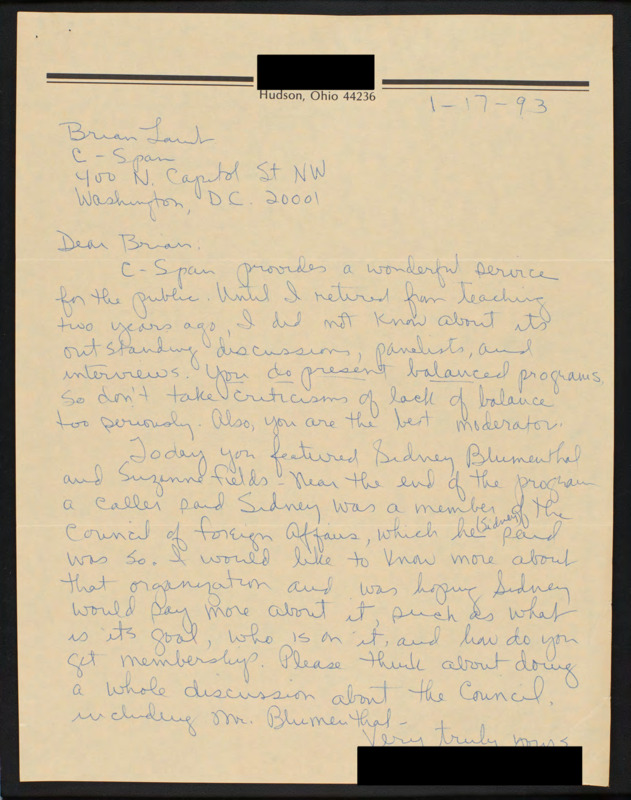 Hudson, Ohio 44236
1-17-93
Brian Lamb
C-Span
400 N. Capitol St NW
Washington, D.C. 20001
Dear Brian.
C-Span provides a wonderful service
for the public. Until I retired from teaching
two years ago, I did not know about its
outstanding discussions, panelists, and
interviews. You do present balanced programs,
so don't take criticisms of lack of balance
too seriously. Also, you are the best moderator.
Today you featured Sidney Blumenthal
and Suzanne Fields - Near the end of the program
a caller said Sidney was a member of the
Council of Foreign Affairs, which he (Sidney) said
was so. I would like to know more about
that organization and was hoping Sidney
would say more about it, such as what
is its goal, who is on it, and how do you
get membership. Please think about doing
a whole discussion about the Council,
including Mr. Blumenthal -
Very truly yours